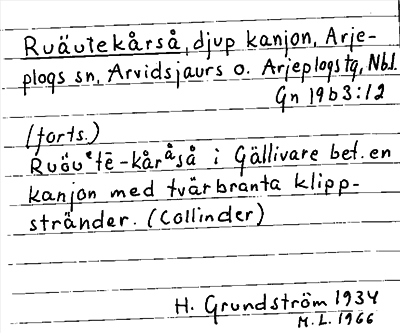 Ruäutekårså, djup kanjon, Arje-
plogs sn, Arvidsjaurs o. Arjeplogs tg, Nbl.
Gn 19b3:12
(forts.)
Ruäuᵉtē-kårᵃ̊så i Gällivare bet. en
kanjon med tvärbranta klipp-
stränder. (Collinder)
H. Grundström 1934
M.L. 1966